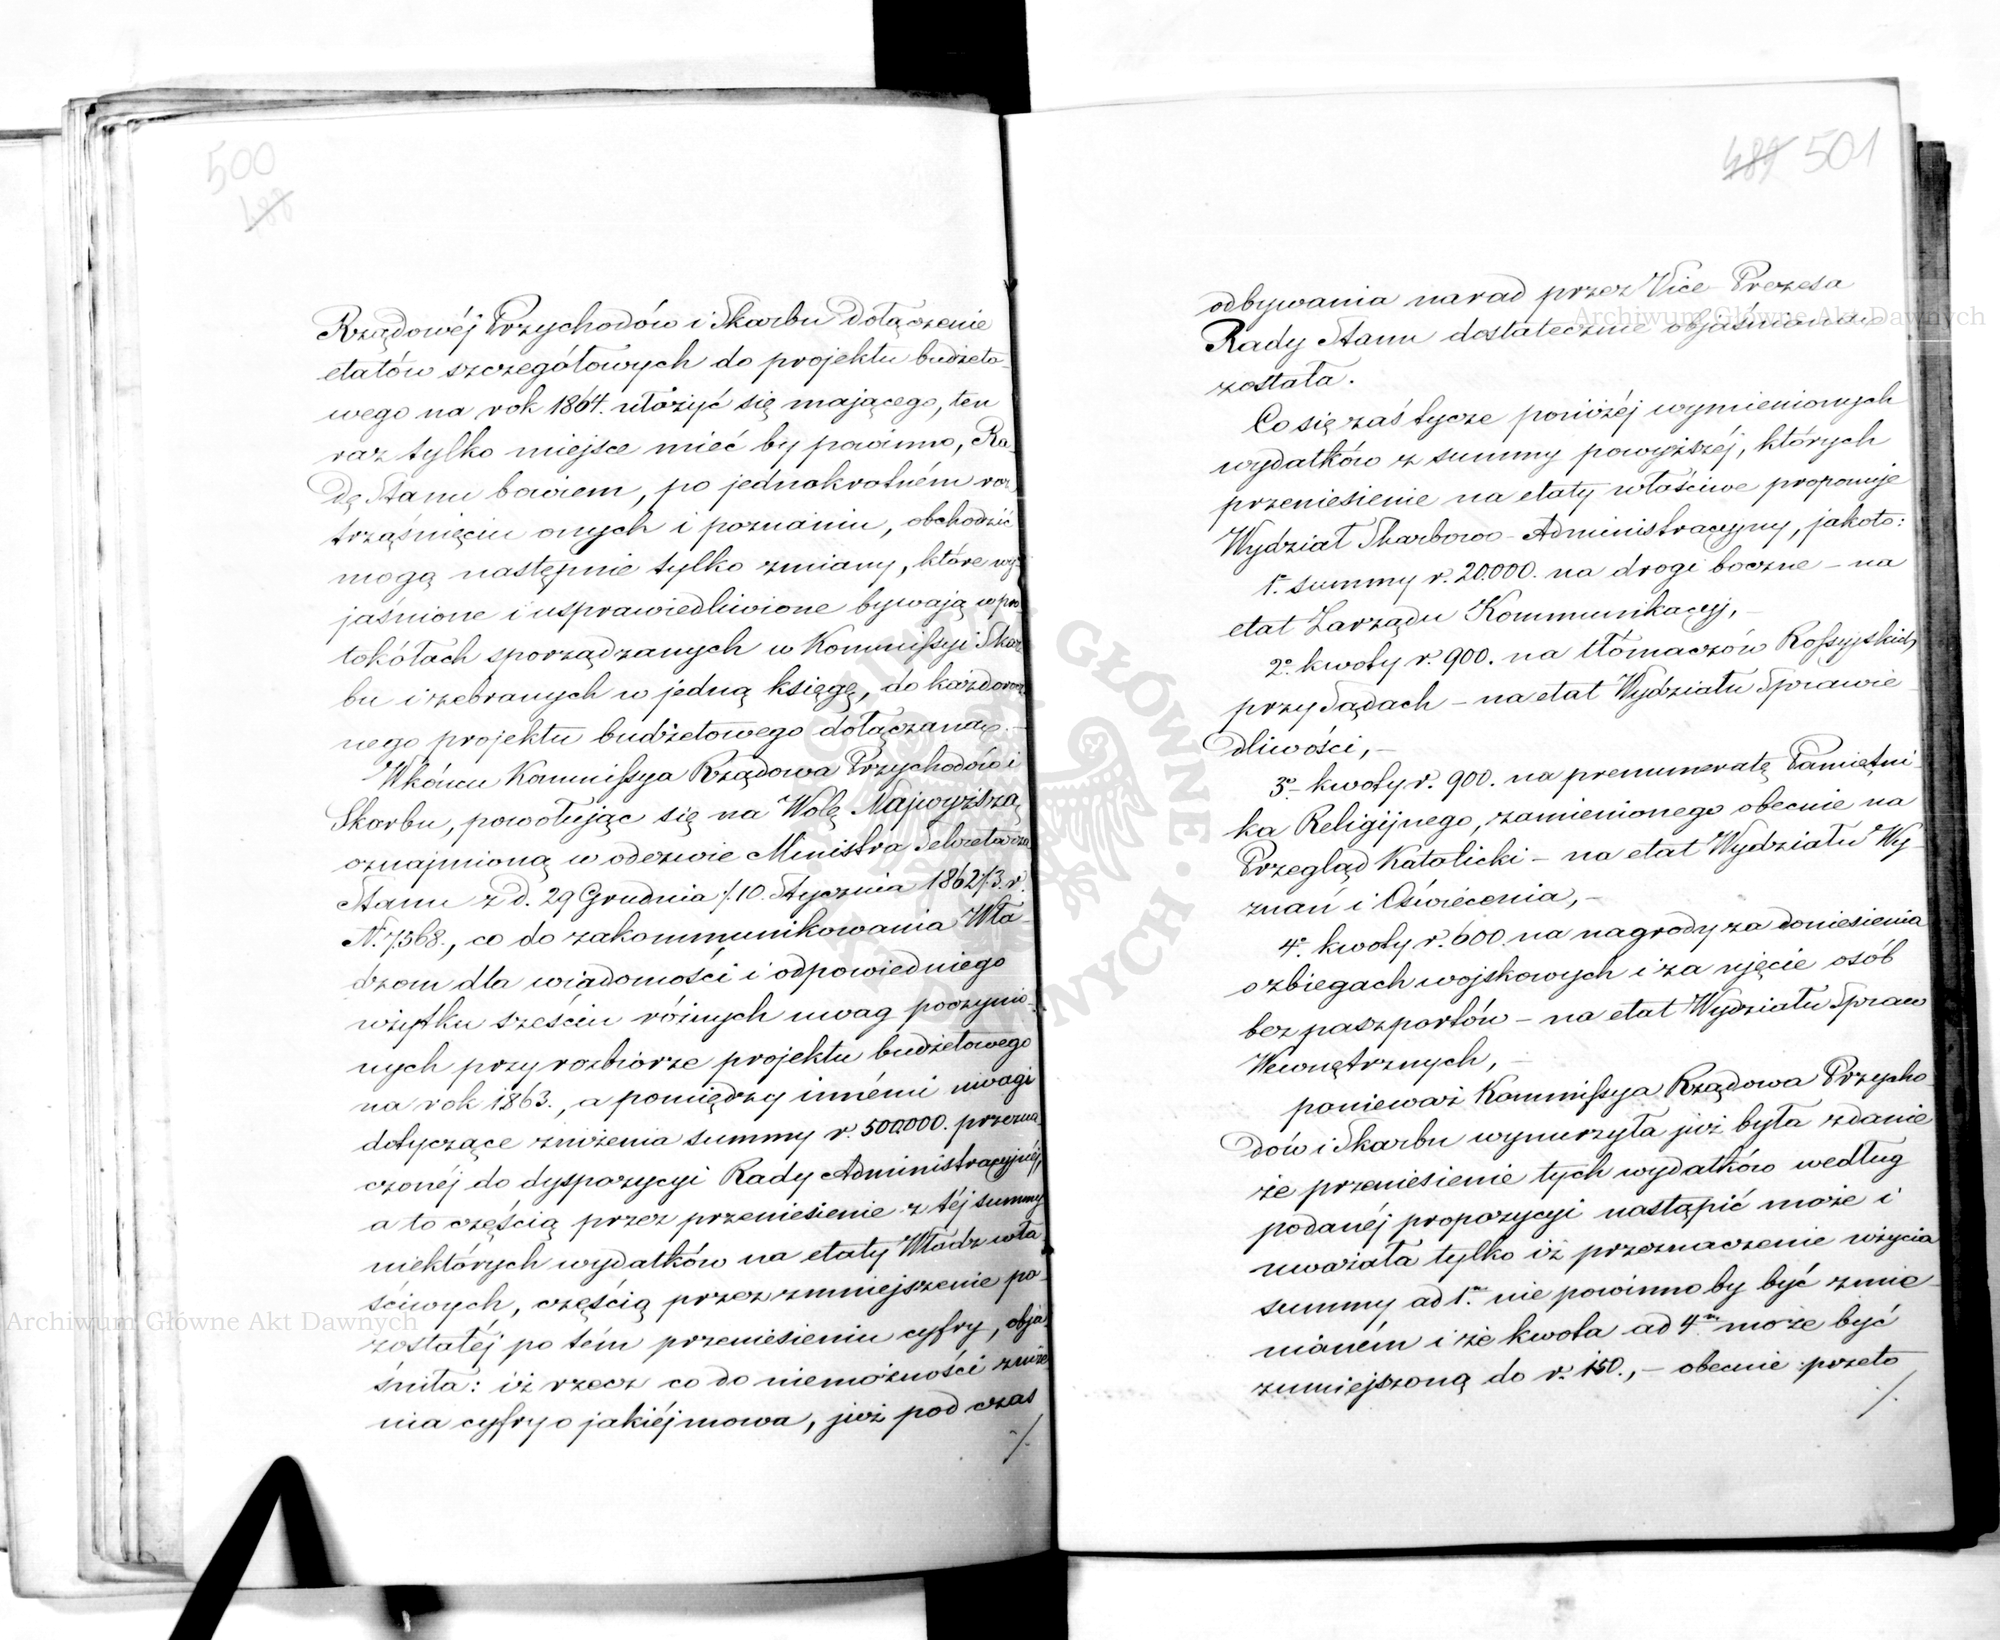 500
488
Rządowéj Przychodów i Skarbu dołączenie
etatów szczegółowych do projektu budżeto-
wego na rok 1864. ułożyć się mającego, ten
raz tylko miejsce mieć by powinno, Ra-
dę Stanu bowiem, po jednokrotném roz-
trząśnięciu onych i poznaniu, obchodzić
mogą następnie tylko zmiany, które wy-
jaśnione i usprawiedliwione bywają w pro-
tokółach sporządzanych w Kommissyi Skar-
bu i zebranych w jedną księgę, do każdorocz-
nego projektu budżetowego dołączaną. –
W końcu Kommissya Rządowa Przychodów i
Skarbu, powołując się na Wolę Najwyższą,
oznajmioną w odezwie Ministra Sekretarza
Stanu z d. 29 Grudnia /10. Stycznia 1862/3. r.
N. 7,568., co do zakommunikowania Wła-
dzom dla wiadomości i odpowiedniego
użytku sześciu różnych uwag poczynio-
nych przy rozbiorze projektu budżetowego
na rok 1863., a pomiędzy innémi uwagi
dotyczące zniżenia summy r. 500.000. przezna-
czonéj do dyspozycyi Rady Administracyjnéj,
a to częścią przez przeniesienie z téj summy
niektórych wydatków na etaty Władz wła-
ściwych, częścią przez zmniejszenie po-
zostałéj po tém przeniesieniu cyfry, obja-
śniła: iż rzecz co do niemożności zniże-
nia cyfry o jakiéj mowa, już pod czas
./.
489 501
odbywania narad przez Vice Prezesa
Rady Stanu dostatecznie objaśnioną
została.
Co się zaś tycze poniżéj wymienionych
wydatków z summy powyższéj, których
przeniesienie na etaty właściwe proponuje
Wydział Skarbowo-Administracyjny, jakoto:
1º. summy r. 20.000. na drogi boczne – na
etat Zarządu Kommunikacyj, –
2º. kwoty r. 900. na tłomaczów Rossyjskich
przy Sądach – na etat Wydziału Sprawie-
dliwości, –
3º. kwoty r. 900. na prenumeratę Pamiętni-
ka Religijnego, zamienionego obecnie na
Przegląd Katolicki – na etat Wydziału Wy-
znań i Oświecenia, –
4º. kwoty r. 600. na nagrody za doniesienia
o zbiegach wojskowych i za ujęcie osób
bez paszportów – na etat Wydziału Spraw
Wewnętrznych, –
ponieważ Kommissya Rządowa Przycho-
dów i Skarbu wynurzyła już była zdanie
że przeniesienie tych wydatków według
podanéj propozycyi nastąpić może i
uważała tylko iż przeznaczenie użycia
summy ad 1.m nie powinno by być zmie-
nianém i że kwota ad 4.m może być
zmniejszoną do r. 150., – obecnie przeto
./.
Archiwum Główne Akt Dawnych
Archiwum Główne Akt Dawnych